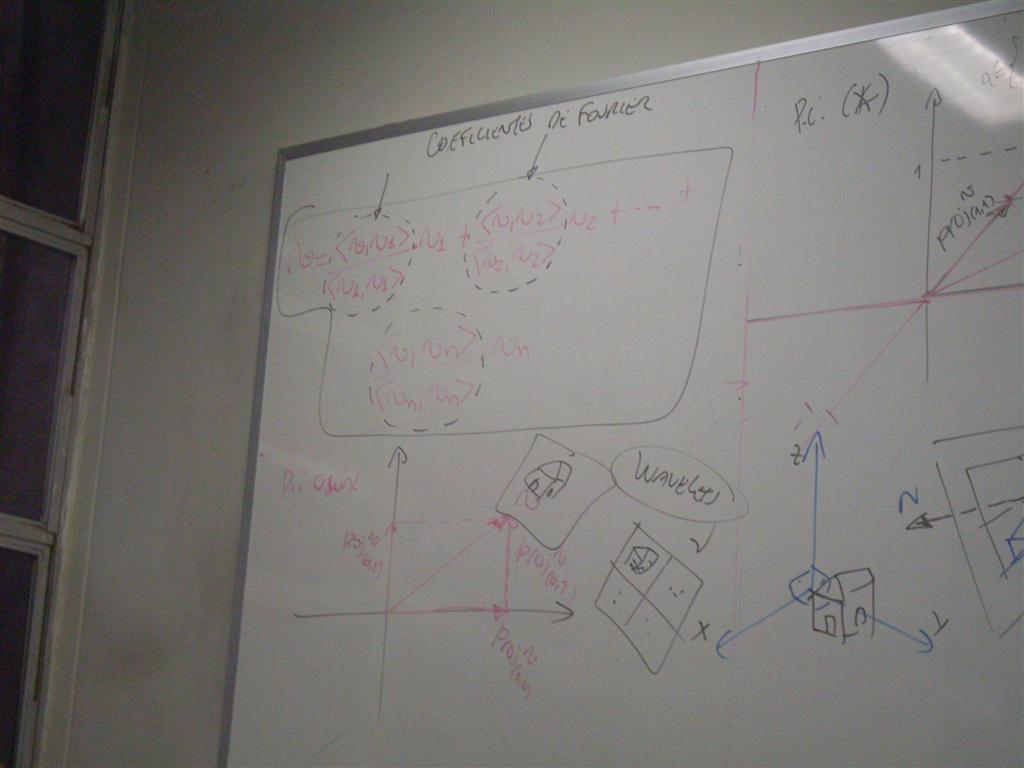 COEFICIENTES DE FOURIER
v = <v,v1>/<v1,v1> v1 + <v,v2>/<v2,v2> v2 + ... +
<v,vn>/<vn,vn> vn
P.i. (*)
1
proj v (1,1)
P.i usual
proj v (0,1)
proj v (0,1)
proj v (1,0)
WAVELETS
Z
X
Y
N